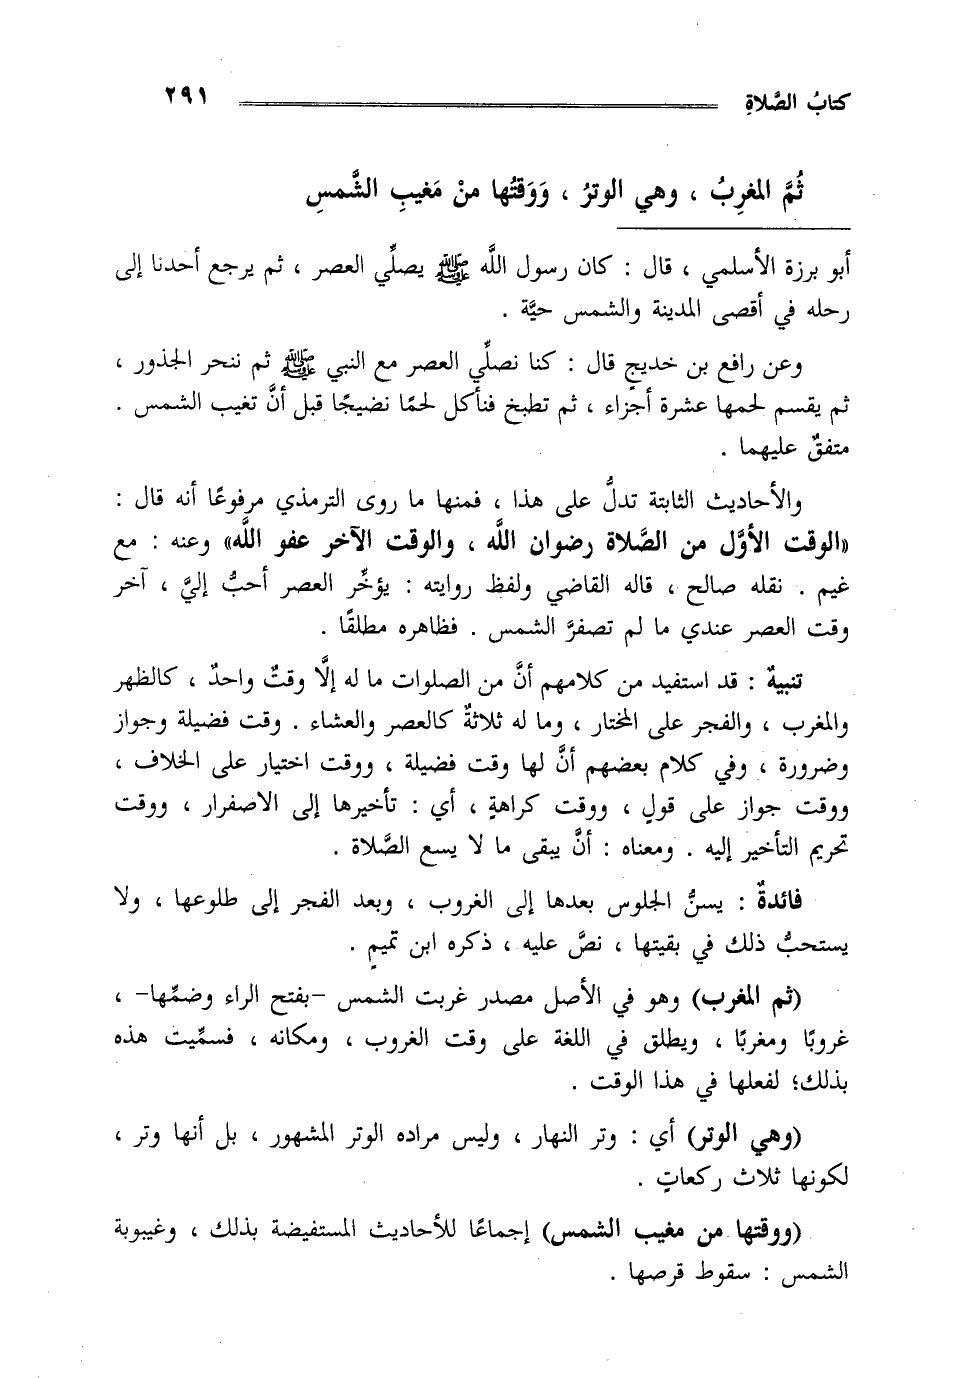 كتابُ الصَّلاةِ ٢٩١
ثُمَّ المغرِبُ ، وهي الوترُ ، وَوَقتُها منْ مَغيبِ الشَّمسِ
أبو برزة الأسلمي ، قال : كان رسول اللَّه ﷺ يصلِّي العصر ، ثم يرجع أحدنا إلى
رحله في أقصى المدينة والشمس حيَّة .
وعن رافع بن خديجٍ قال : كنا نصلِّي العصر مع النبي ﷺ ثم ننحر الجذور ،
ثم يقسم لحمها عشرة أجزاء ، ثم تطبخ فنأكل لحمًا نضيجًا قبل أنَّ تغيب الشمس .
متفقٌ عليهما .
والأحاديث الثابتة تدلُّ على هذا ، فمنها ما روى الترمذي مرفوعًا أنه قال :
«الوقت الأوَّل من الصَّلاة رضوان اللَّه ، والوقت الآخر عفو اللَّه» وعنه : مع
غيم . نقله صالح ، قاله القاضي ولفظ روايته : يؤخِّر العصر أحبُّ إليَّ ، آخر
وقت العصر عندي ما لم تصفرَّ الشمس . فظاهره مطلقًا .
تنبيهٌ : قد استفيد من كلامهم أنَّ من الصلوات ما له إلَّا وقتٌ واحدٌ ، كالظهر
والمغرب ، والفجر على المختار ، وما له ثلاثةٌ كالعصر والعشاء . وقت فضيلة وجواز
وضرورة ، وفي كلام بعضهم أنَّ لها وقت فضيلة ، ووقت اختيار على الخلاف ،
ووقت جواز على قولٍ ، ووقت كراهةٍ ، أي : تأخيرها إلى الاصفرار ، ووقت
تحريم التأخير إليه . ومعناه : أنَّ يبقى ما لا يسع الصَّلاة .
فائدةٌ : يسنُّ الجلوس بعدها إلى الغروب ، وبعد الفجر إلى طلوعها ، ولا
يستحبُّ ذلك في بقيتها ، نصَّ عليه ، ذكره ابن تميمٍ .
(ثم المغرب) وهو في الأصل مصدر غربت الشمس –بفتح الراء وضمِّها– ،
غروبًا ومغربًا ، ويطلق في اللغة على وقت الغروب ، ومكانه ، فسمِّيت هذه
بذلك؛ لفعلها في هذا الوقت .
(وهي الوتر) أي : وتر النهار ، وليس مراده الوتر المشهور ، بل أنها وتر ،
لكونها ثلاث ركعاتٍ .
(ووقتها من مغيب الشمس) إجماعًا للأحاديث المستفيضة بذلك ، وغيبوبة
الشمس : سقوط قرصها .